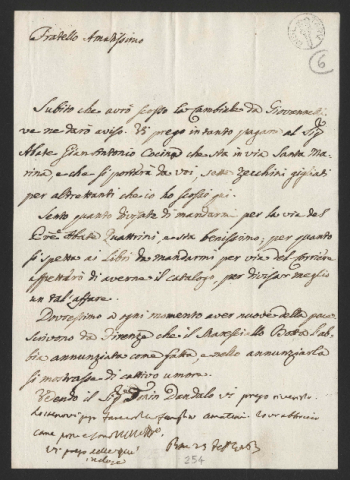 Fratello Amatissimo
6
Subito che avrò scosso la cambiale da Giovannelli
ve ne darò aviso. Vi prego intanto pagare al Sigr
Abate Gian Antonio che sta in via Santa Ma
rina, e che si porterà da voi, sette zecchini gigiati
per altrettanti che io ho scossi qui.
Sento quanto di mandare per la via del
Abate Quattrini, e sta benissimo; per quanto
si spetta ai Libri da mandarmi per via del corriere
aspettarò di averne il catalogo, per divisar meglio
un tal affare.
Dovressimo a ogni momento aver nuove della pace
scrivono da Firenze che il Botta l'ab
bia annunziata come fatta e nello annunziarla
si mostrasse di cattivo umore.
Vedendo il Sigr Dandolo vi prego riverirlo
vi abbraccio
come
Vi prego delle
inclusa
254